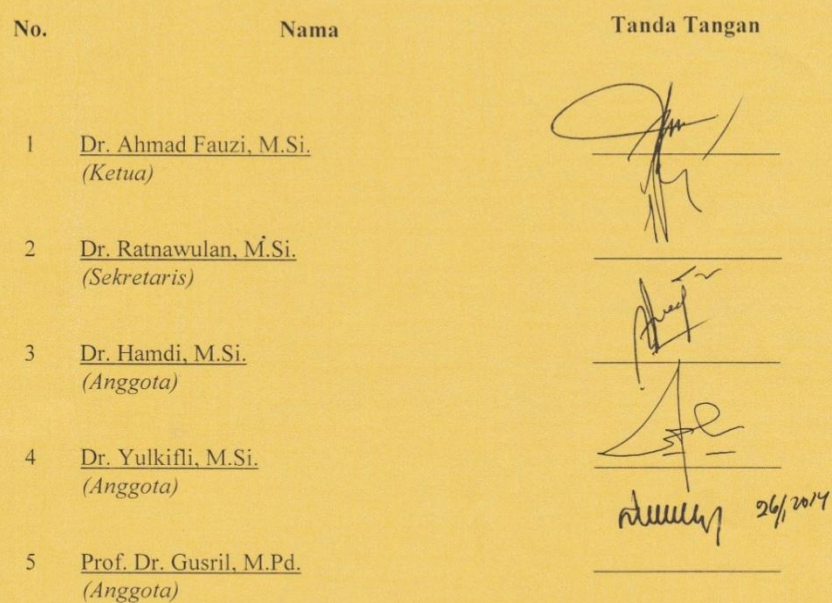 No. Nama Tanda Tangan
1 Dr. Ahmad Fauzi, M.Si.
(Ketua)
2 Dr. Ratnawulan, M.Si.
(Sekretaris)
3 Dr. Hamdi, M.Si.
(Anggota)
4 Dr. Yulkifli, M.Si.
(Anggota)
5 Prof. Dr. Gusril, M.Pd.
(Anggota)